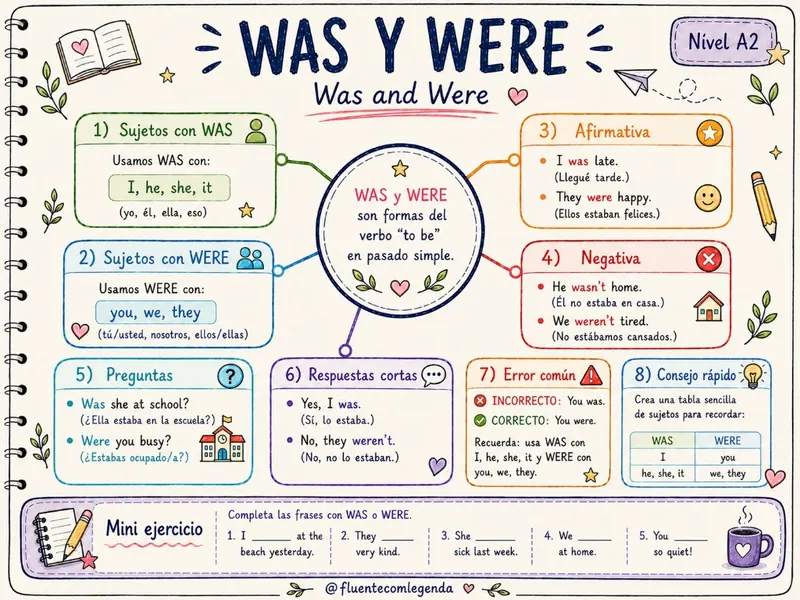 WAS Y WERE
Was and Were
Nível A2
1) Sujetos con WAS
Usamos WAS con:
I, he, she, it
(yo, él, ella, eso)
2) Sujetos con WERE
Usamos WERE con:
you, we, they
(tú/usted, nosotros, ellos/ellas)
WAS y WERE
son formas del
verbo “to be”
en pasado simple.
3) Afirmativa
I was late.
(Llegué tarde.)
They were happy.
(Ellos estaban felices.)
4) Negativa
He wasn't home.
(Él no estaba en casa.)
We weren't tired.
(No estábamos cansados.)
5) Preguntas
?
Was she at school?
(¿Ella estaba en la escuela?)
Were you busy?
(¿Estabas ocupado/a?)
6) Respuestas cortas
Yes, I was.
(Sí, lo estaba.)
No, they weren't.
(No, no lo estaban.)
7) Error común
INCORRECTO: You was.
CORRECTO: You were.
Recuerda: usa WAS con
I, he, she, it y WERE con
you, we, they.
8) Consejo rápido
Crea una tabla sencilla
de sujetos para recordar:
WAS WERE
I you
he, she, it we, they
Mini ejercicio
Completa las frases con WAS o WERE.
1. I ______ at the
beach yesterday.
2. They ______
very kind.
3. She ______
sick last week.
4. We ______
at home.
5. You ______
so quiet!
@fluentecomlegenda